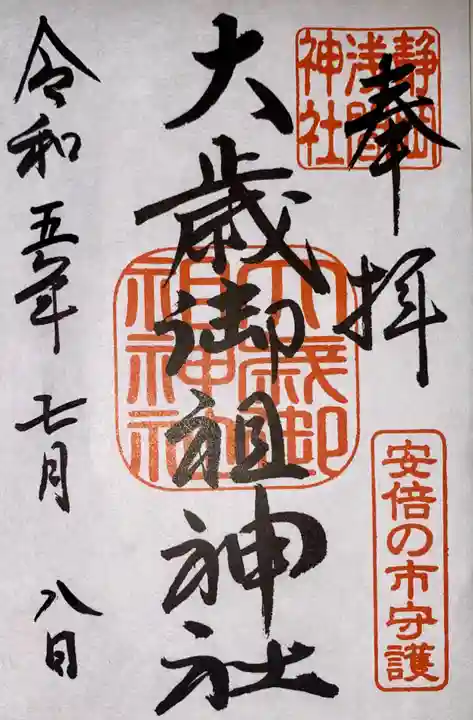 奉拝
静岡浅間神社
安倍の市守護
大歳御祖神社
大歳御祖神社
令和五年七月八日